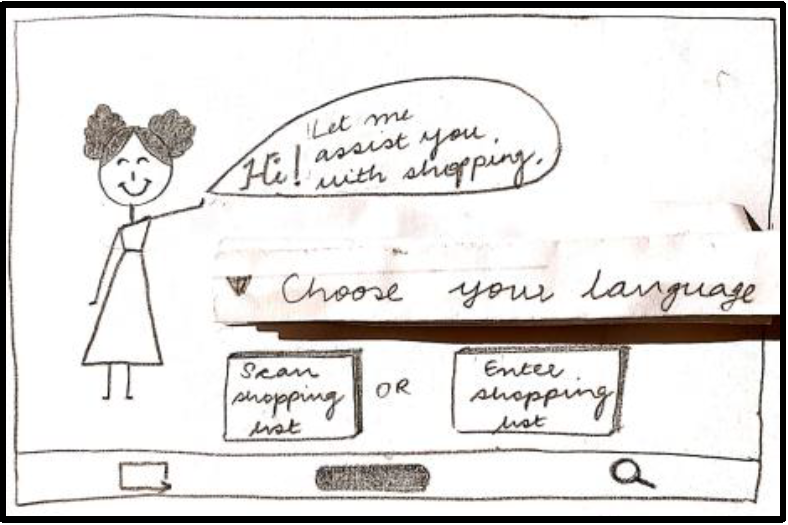 Hi!
Let me
assist you
with shopping.
Choose your language
Scan
shopping
list
OR
Enter
shopping
list